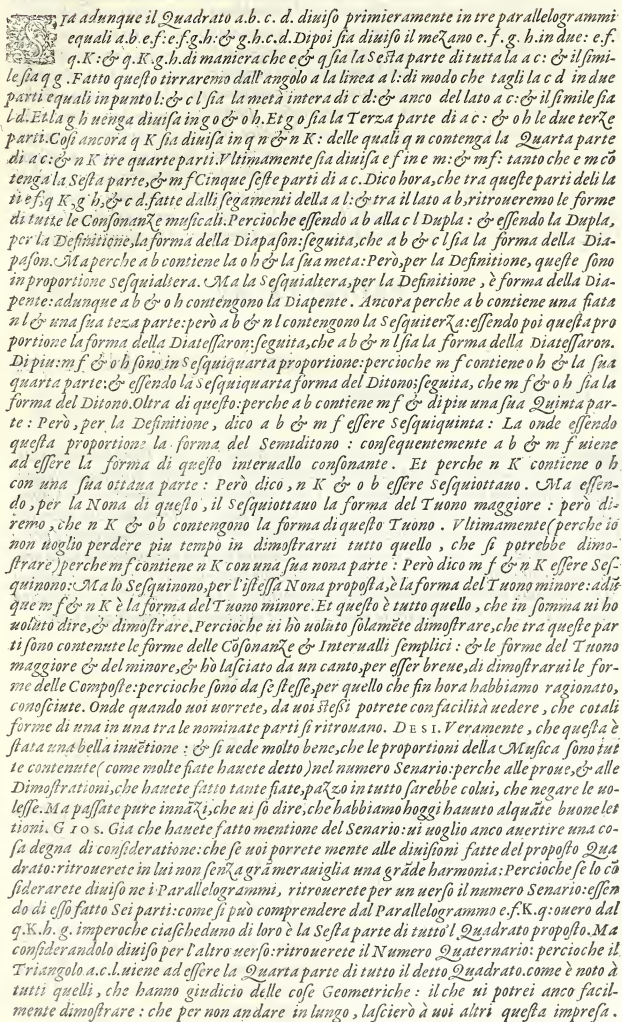 SIA adunque il Quadrato a.b. c. d. diuiso primieramente in tre parallelogrammi
equali a.b.e.f: e.f.g.h: & g.h.c.d. Dipoi sia diuiso il mezano e. f. g. h. in due: e.f.
q.K: & q.K.g.h. di maniera che e & q sia la Sesta di tutta la a c: & il simi-
le sia q g. Fatto questo tirraremo dall'angolo a la linea a l: di modo che tagli la c d in due
parti equali in punto l: & c l sia la metà intera di c d: & anco del lato a c: & il simile sia
l d. Et la g h uenga diuisa in g o & o h. Et g o sia la Terza parte di a c: & o h le due terze
parti. Cosi ancora q K sia diuisa in q n & n K: delle quali q n contenga la Quarta parte
di a c: & n K tre quarte parti. Vltimamente sia diuisa e f in e m: & m f: tanto che e m cõ
tenga la Sesta parte, & m f Cinque seste parti di a c. Dico hora, che tra queste parti deli la
ti e f, q K, g h, & c d. fatte dalli segamenti della a l: & tra il lato a b, ritroueremo le forme
di tutte le Consonanze musicali. Percioche essendo a b alla c l Dupla: & essendo la Dupla,
per la Definitione, la forma della Diapason: seguita, che a b & c l sia la forma della Dia-
pason. Ma perche a b contiene la o h & la sua meta: Però, per la Definitione, queste sono
in proportione Sesquialtera. Ma la Sesquialtera, per la Definitione, è forma della Dia-
pente: adunque a b & o h contengono la Diapente. Ancora perche a b contiene una fiata
n l & una sua teza parte: però a b & n l contengono la Sesquiterza: essendo poi questa pro
portione la forma della Diatessaron: seguita, che a b & n l sia la forma della Diatessaron.
Di piu: m f & o h sono in Sesquiquarta proportione: percioche m f contiene o h & la sua
quarta parte: & essendo la Sesquiquarta forma del Ditono; seguita, che m f & o h sia la
forma del Ditono. Oltra di questo: perche a b contiene m f & di piu una sua Quinta par-
te: Però, per la Definitione, dico a b & m f essere Sesquiquinta: La onde essendo
questa proportione la forma del Semiditono: consequentemente a b & m f uiene
ad essere la forma di questo interuallo consonante. Et perche n K contiene o h
con una sua ottaua parte: Però dico, n K & o b essere Sesquiottauo. Ma essen-
do, per la Nona di questo, il Sesquiottauo la forma del Tuono maggiore: però di-
remo, che n K & o b contengono la forma di questo Tuono. Vltimamente (perche io
non uoglio perdere piu tempo in dimostrarui tutto quello, che si potrebbe dimo-
strare) perche m f contiene n K con una sua nona parte: Però dico m f & n K essere Ses-
quinono: Ma lo Sesquinono, per l'istessa Nona proposta, è la forma del Tuono minore: adũ
que m f & n K è la forma del Tuono minore. Et questo è tutto quello, che in somma ui hò
uoluto dire, & dimostrare. Percioche ui hò uoluto solamẽte dimostrare, che tra queste par
ti sono contenute le forme delle Cõsonanze & Interualli semplici: & le forme del Tuono
maggiore & del minore, & hò lasciato da un canto, per esser breue, di dimostrarui le for-
me delle Composte: percioche sono da se stesse, per quello che fin hora habbiamo ragionato,
conosciute. Onde quando uoi uorrete, da uoi stessi potrete con facilità uedere, che cotali
forme di una in una tra le nominate parti si ritrouano. DESI. Veramente, che questa è
stata una bella inuẽtione: & si uede molto bene, che le proportioni della Musica sono tut
te contenute (come molte fiate hauete detto) nel numero Senario: perche alle proue, & alle
Dimostrationi, che hauete fatto tante fiate, pazzo in tutto sarebbe colui, che negare le uo-
lesse. Ma passate pure innãzi, che ui so dire, che habbiamo hoggi hauuto alquãte buone let
tioni. GIOS. Gia che hauete fatto mentione del Senario: ui uoglio anco auertire una co-
sa degna di consideratione: che se uoi porrete mente alle diuisioni fatte del proposto Qua
drato: ritrouerete in lui non senza grã merauiglia una grãde harmonia: Percioche se lo cõ
siderarete diuiso ne i Parallelogrammi, ritrouerete per un uerso il numero Senario: essen
do di esso fatto Sei parti: come si può comprendere dal Parallelogrammo e.f.K.q: ouero dal
q.K.h.g. imperoche ciascheduno di loro è la Sesta parte di tutto'l Quadrato proposto. Ma
considerandolo diuiso per l'altro uerso: ritrouerete il Numero Quaternario: percioche il
Triangolo a.c.l. uiene ad essere la Quarta parte di tutto il detto Quadrato. come è noto à
tutti quelli, che hanno giudicio delle cose Geometriche: il che ui potrei anco facil-
mente dimostrare: che per non andare in lungo, lascierò à uoi altri questa impresa.